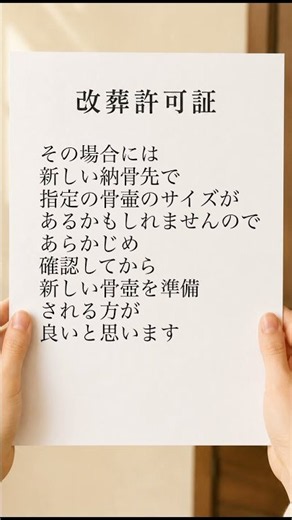 改葬許可証
その場合には
新しい納骨先で
指定の骨壷のサイズが
あるかもしれませんので
あらかじめ
確認してから
新しい骨壷を準備
される方が
良いと思います